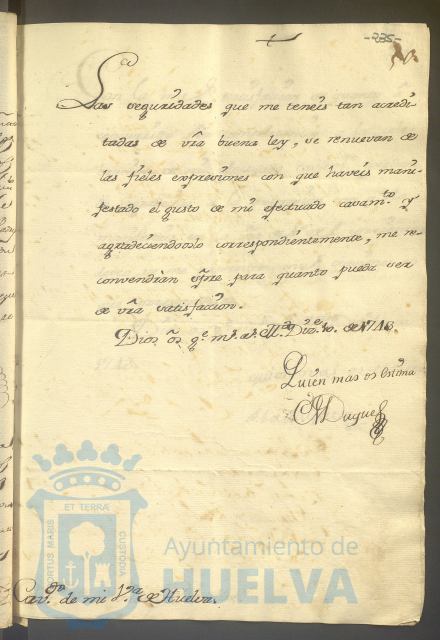 -235-
Las seguridades que me teneis tan acredi-
tadas de vr̃a buena ley, se renuevan de
las fieles expresiones con que haveis mani-
festado el gusto de mi efectuado casam.to y
agradeciendooslo correspondientemente, me re-
convendrán spr̃e para quanto pueda ser
de vr̃a satisfaccion.
Dios os g.e m.s a.s M.d Dize 10. de 1713.
Quien más os Estima
El Duque
PORTUS MARIS ET TERRÆ CUSTODIA
Ayuntamiento de
HUELVA
Cav.do de mi V.a de Huelva.